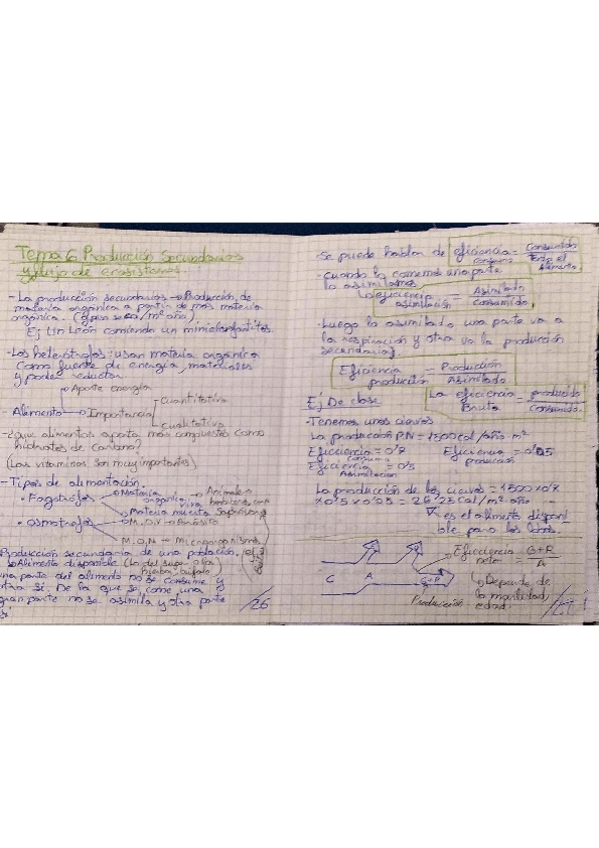 Tema 6 Producción secundaria
y flujo de ecosistemas.
- La producción secundaria → Producción de
materia orgánica a partir de más materia
orgánica. (g/peso seco/m² año).
Ej Un León comiendo un minielefantitos.
- Los heterótrofos: usan materia orgánica
como fuente de energía, materiales
y poder reductor.
Aporte energía
Alimento Importancia Cuantitativa
Cualitativa
- ¿que alimentos aporta más compuestos como
hidratos de Carbono?
(Las vitaminas son muy importantes)
- Tipos de alimentación.
• Fagótrofos Materia orgánica viva → Animales
Materia muerta
• Osmótrofos M.O.V → Parásito
M.O.N → Microorganismos
Producción secundaria de una población,
Alimento disponible
una parte del alimento no se consume y
otra si. De la que se come una
gran parte no se asimila y otra parte
si
/26
- Se puede hablar de eficiencia consumo = Consumido / Todo el Alimento
- Cuando lo comemos una parte
la asimilamos
La eficiencia asimilación = Asimilado / Consumido
- Luego lo asimilado una parte va a
la respiración y otra va la producción
secundaria.
Eficiencia producción = Producción / Asimilado
La eficiencia Bruta = producido / Consumido
Ej De clase
- Tenemos unos ciervos
La producción P.N = 1500 cal/año m²
Eficiencia consumo = 0'7 Eficiencia producción = 0'05
Eficiencia Asimilación = 0'5
La producción de los ciervos = 1500 x 0'7
x 0'5 x 0'05 = 26'25 Cal/m² año
es el alimento disponi
ble para los lobos.
C A G+R
Producción
Eficiencia neta = G+R / A
Depende de
la movilidad,
edad.